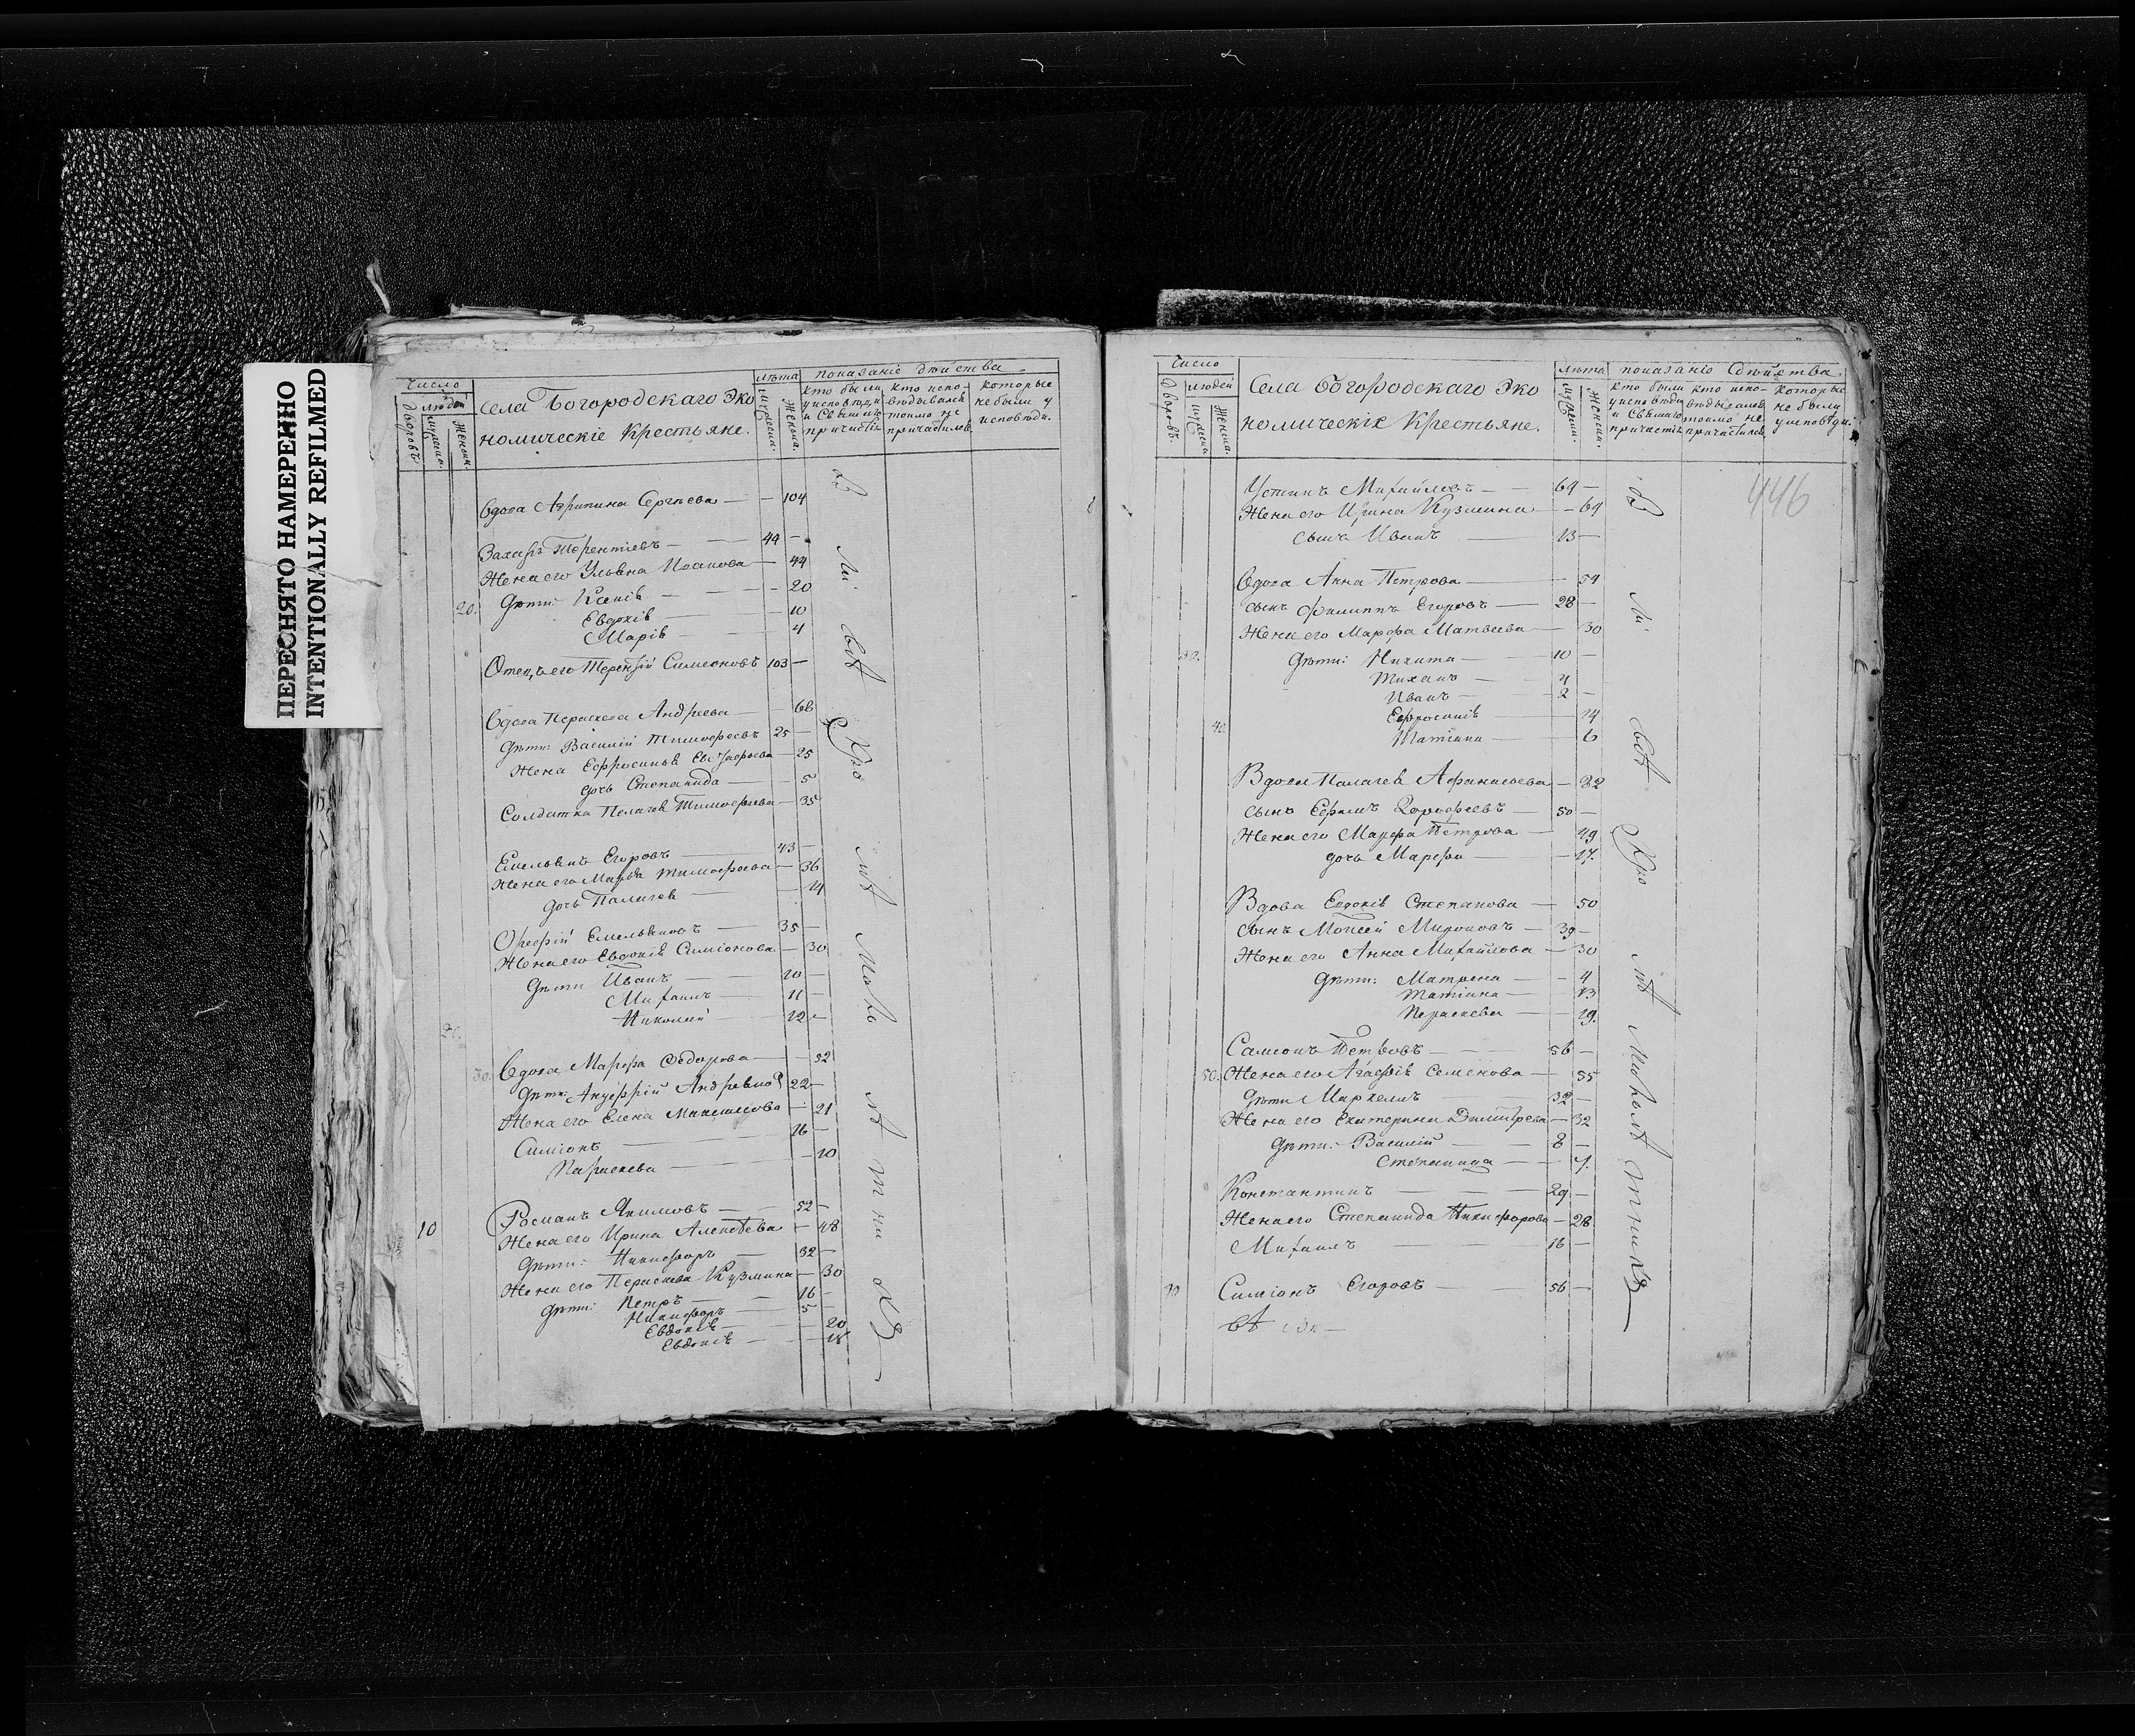 ПЕРЕСНЯТО НАМЕРЕННО
INTENTIONALLY REFILMED
Число
людей
дворовъ
мужеска
женска
Села Богородскаго Эко
номическіе Крестьяне.
лѣта
мужеска.
Женска.
показаніе дѣйства
кто были у исповѣди и Свѣтаго причастія
кто испо-вѣдывался токмо не причастился
которые не были у исповѣди.
Вдова Агрипина Сергѣева — — 104
Захаръ Терентіевъ — 44 —
Жена его Ульяна Иванова — 44
20. Дѣти: — — 20
Евдокія — 10
Марія — 4
Отецъ его Терентій Симеоновъ 103 —
Вдова Параскева Андреева — 68
Дѣти: Василій Тимофеевъ 25 —
Жена Ефросинья — 25
дочь Степанида — 5
Солдатка Пелагея Тимофеева — 35
Емельянъ Егоровъ — 43 —
Жена его Марья Тимофеева — 36
дочь Палагея — 14
Емельяновъ — 35 —
Жена его Евдокія Симіонова — 30
Дѣти Иванъ — 20 —
Михаилъ — 11 —
Николай — 12 —
30. Вдова Марфа Федорова — 52
Дѣти: Андреевъ 22 —
Жена его Елена Максимова — 21
Симіонъ — 16 —
Параскева — 10
10 Романъ Якимовъ — 52 —
Жена его Ирина Алексѣева — 48
Дѣти: Никифоръ — 32 —
Жена его Параскева Кузмина — 30
Дѣти: Петръ — 16 —
Никифоръ — 5 —
Евдокія — 20
Евдокія — 18
Число
людей
дворовъ.
мужеска
Женска.
Села Богородскаго Эко
номическіе Крестьяне.
лѣта
мужески.
Женски.
показаніе дѣйства
кто были у исповѣди и Свѣтаго причастія
кто испо-вѣдывался токмо не причастился
которые не были у исповѣди.
446
Устинъ Михайловъ — 64 —
Жена его Ирина Кузмина — 64
сынъ Иванъ — 13 —
Вдова Анна Петрова — 54
сынъ Филиппъ Егоровъ — 28 —
Жена его Марфа Матвеева — 30
Дѣти: Никита — 10 —
Михаилъ — 4
Иванъ — 2 —
40. Ефросинія — 14
Татіана — 6
Вдова Палагея Афанасьева — 82
сынъ Ефимъ Дорофеевъ — 50 —
Жена его Марфа Петрова — 49
дочь Марфа — 17.
Вдова Евдокія Степанова — 50
сынъ Моисей Мироновъ — 39 —
Жена его Анна Михайлова — 30
Дѣти: Матрена — 4
Татіана — 13
Параскева — 19.
Самсонъ Петровъ — 56 —
50. Жена его Агафія Семенова — 55
Дѣти Маркелъ — 32 —
Жена его Екатерина Димитрева — 32
Дѣти: Василій — 8 —
Степанида — 4.
Константинъ — 29 —
Жена его Степанида Никифорова — 28
Михаилъ — 16 —
Симіонъ Егоровъ — 56 —